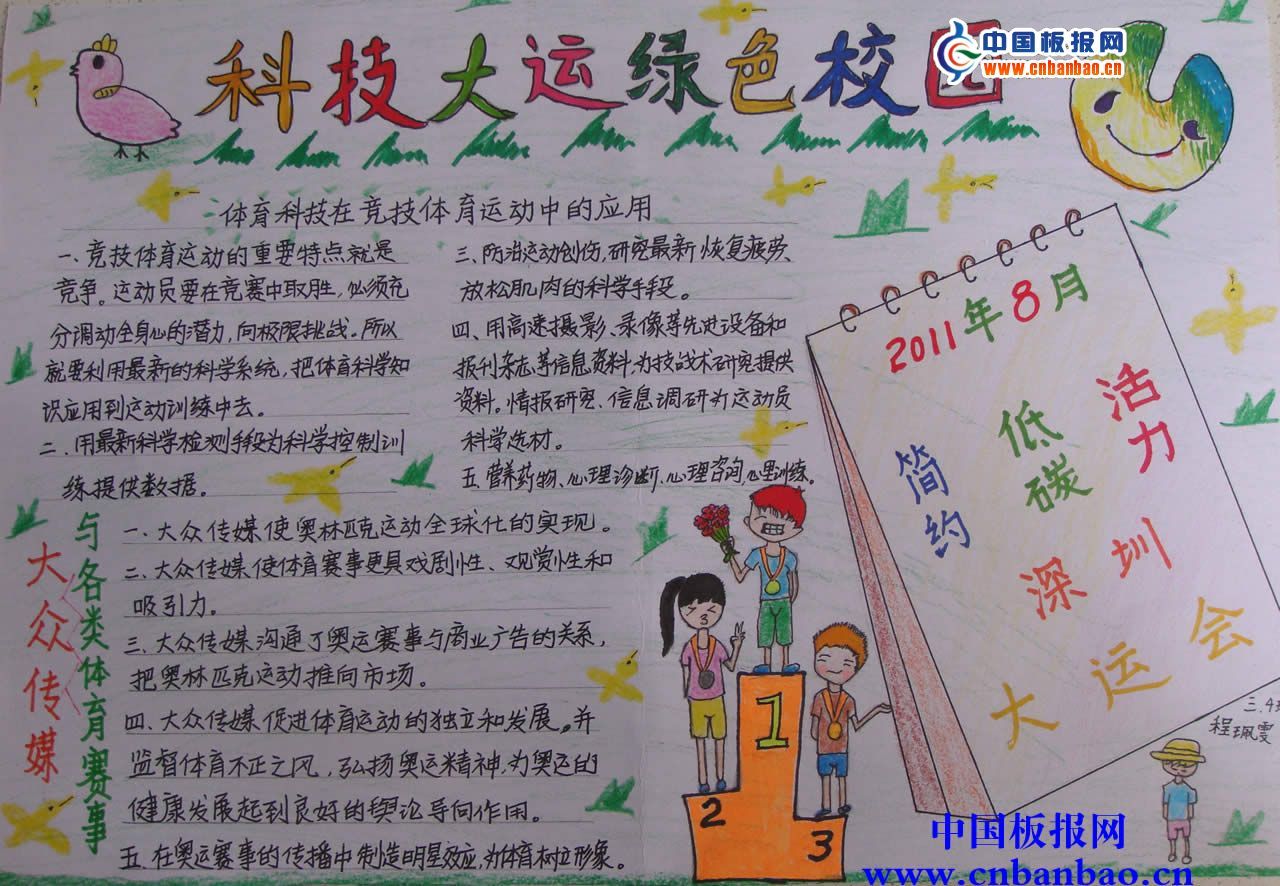 科技大运绿色校园
中国板报网
www.cnbanbao.cn
体育科技在竞技体育运动中的应用
一、竞技体育运动的重要特点就是
竞争。运动员要在竞赛中取胜,必须充
分调动全身心的潜力,向极限挑战。所以
就要利用最新的科学系统,把体育科学知
识应用到运动训练中去。
二、用最新科学检测手段为科学控制训
练提供数据。
三、防治运动创伤,研究最新恢复疲劳、
放松肌肉的科学手段。
四、用高速摄影、录像等先进设备和
报刊杂志等信息资料,为技战术研究提供
资料。情报研究、信息调研为运动员
科学选材。
五、营养药物、心理诊断、心理咨询,心里训练。
大众传媒
与各类体育赛事
一、大众传媒使奥林匹克运动全球化的实现。
二、大众传媒使体育赛事更具戏剧性、观赏性和
吸引力。
三、大众传媒沟通了奥运赛事与商业广告的关系,
把奥林匹克运动推向市场。
四、大众传媒促进体育运动的独立和发展。并
监督体育不正之风,弘扬奥运精神,为奥运的
健康发展起到良好的舆论导向作用。
五、在奥运赛事的传播中制造明星效应,为体育树立形象。
2011年8月
活力
低碳
简约
深圳
大运会
三.4班
程珮雯
1
2
3
中国板报网
www.cnbanbao.cn